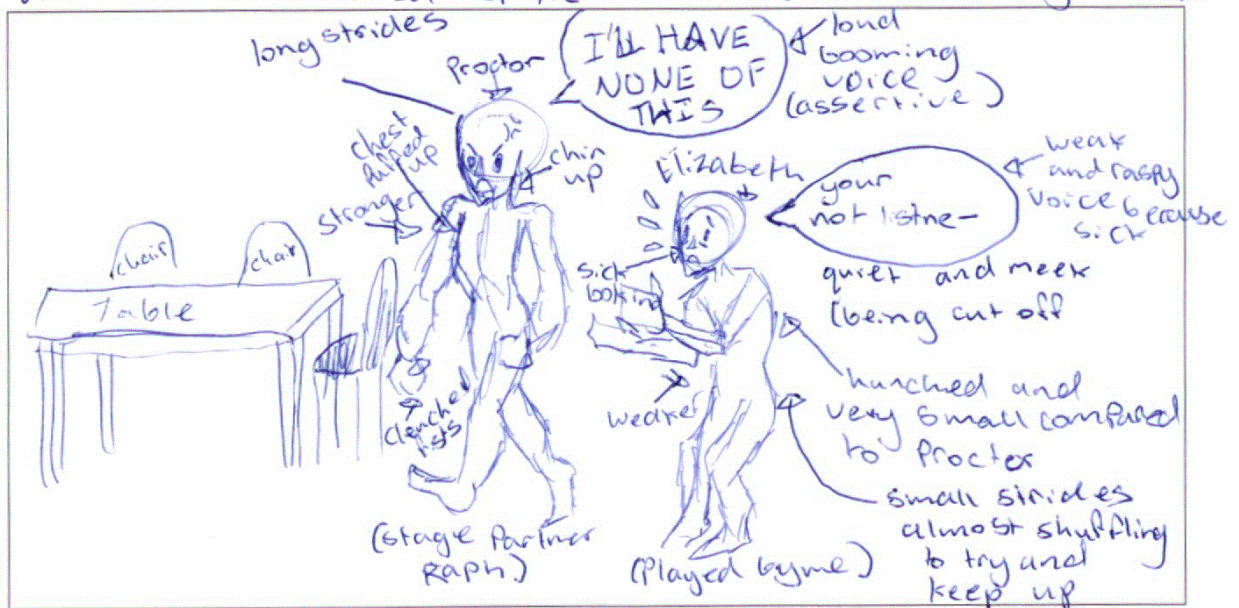 long strides
Proctor
I'LL HAVE
NONE OF
THIS
loud
booming
voice
(assertive)
chest
puffed
up
chin
up
stronger
Elizabeth
your
not listne-
weak
and raspy
voice because
sick
quiet and meek
(being cut off
sick
looking
chair
chair
Table
clenched
fists
weaker
hunched and
very small compared
to Proctor
small strides
almost shuffling
to try and
keep up
(stage Partner
Raph)
(Played by me)